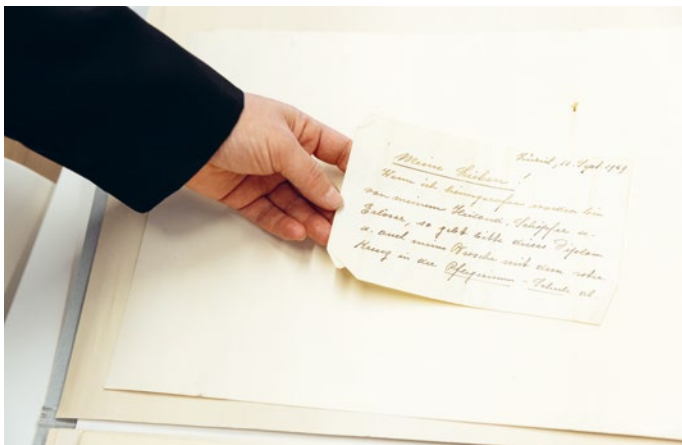 Zürich, 10. Sept 1969
Meine Lieben!
Wenn ich heimgerufen worden bin
von meinem Heiland, Schöpfer u.
Erlöser, so gebt bitte dieses Diplom
u. auch meine Brosche mit dem roten
Kreuz in die Pflegerinnen-Schule ab